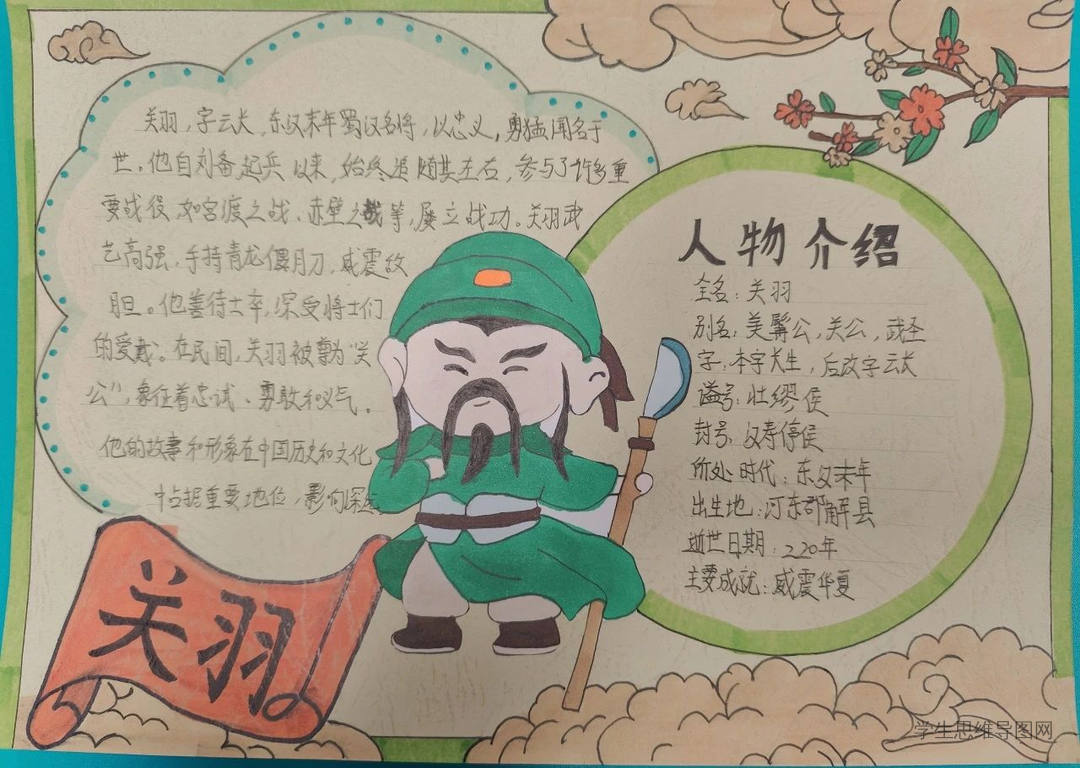 关羽，字云长，东汉末年蜀汉名将，以忠义，勇猛闻名于
世。他自刘备起兵以来，始终追随其左右，参与了许多重
要战役，如官渡之战、赤壁之战等，屡立战功。关羽武
艺高强，手持青龙偃月刀，威震敌
胆。他善待士卒，深受将士们
的爱戴。在民间，关羽被尊为“关
公”，象征着忠诚、勇敢和义气。
他的故事和形象在中国历史和文化
中占据重要地位，影响深远
关羽
人物介绍
全名：关羽
别名：美髯公，关公，武圣
字：本字长生，后改字云长
谥号：壮缪侯
封号：汉寿亭侯
所处时代：东汉末年
出生地：河东郡解县
逝世日期：220年
主要成就：威震华夏
学生思维导图网